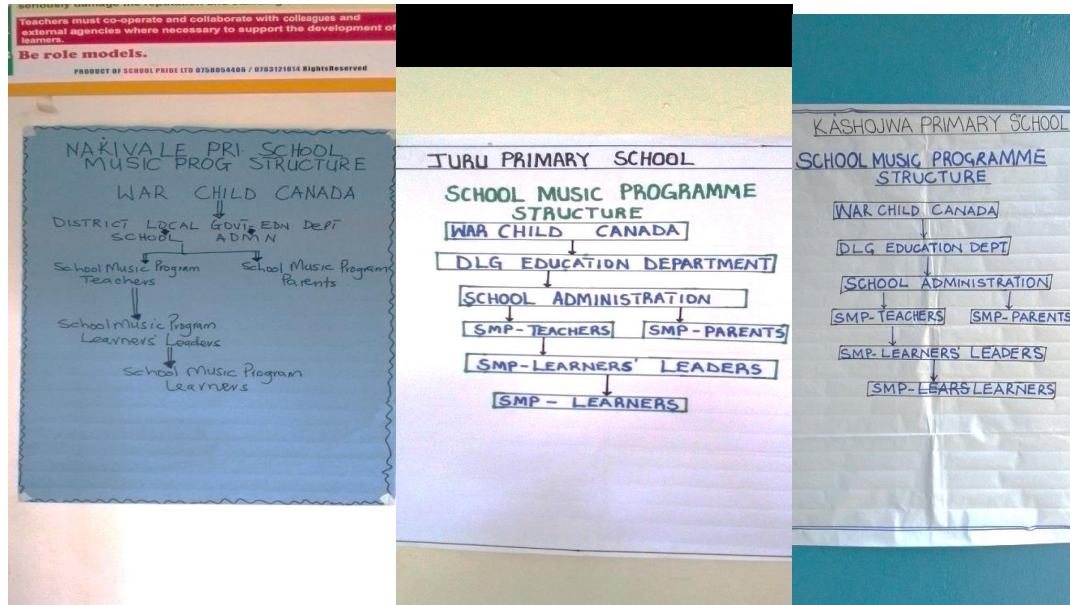 Teachers must co-operate and collaborate with colleagues and
external agencies where necessary to support the development of
learners.
Be role models.
PRODUCT OF SCHOOL PRIDE LTD 0758054406 / 0783121814 RightsReserved
NAKIVALE PRI SCHOOL
MUSIC PROG STRUCTURE
WAR CHILD CANADA
DISTRICT LOCAL GOVT- EDN DEPT
SCHOOL ADMN
School Music Program
Teachers
School Music Program
Parents
School Music Program
Learners' Leaders
School Music Program
Learners
JURU PRIMARY SCHOOL
SCHOOL MUSIC PROGRAMME
STRUCTURE
WAR CHILD CANADA
DLG EDUCATION DEPARTMENT
SCHOOL ADMINISTRATION
SMP-TEACHERS
SMP-PARENTS
SMP-LEARNERS' LEADERS
SMP - LEARNERS
KASHOJWA PRIMARY SCHOOL
SCHOOL MUSIC PROGRAMME
STRUCTURE
WAR CHILD CANADA
DLG EDUCATION DEPT
SCHOOL ADMINISTRATION
SMP-TEACHERS
SMP-PARENTS
SMP-LEARNERS' LEADERS
SMP-LEARS LEARNERS